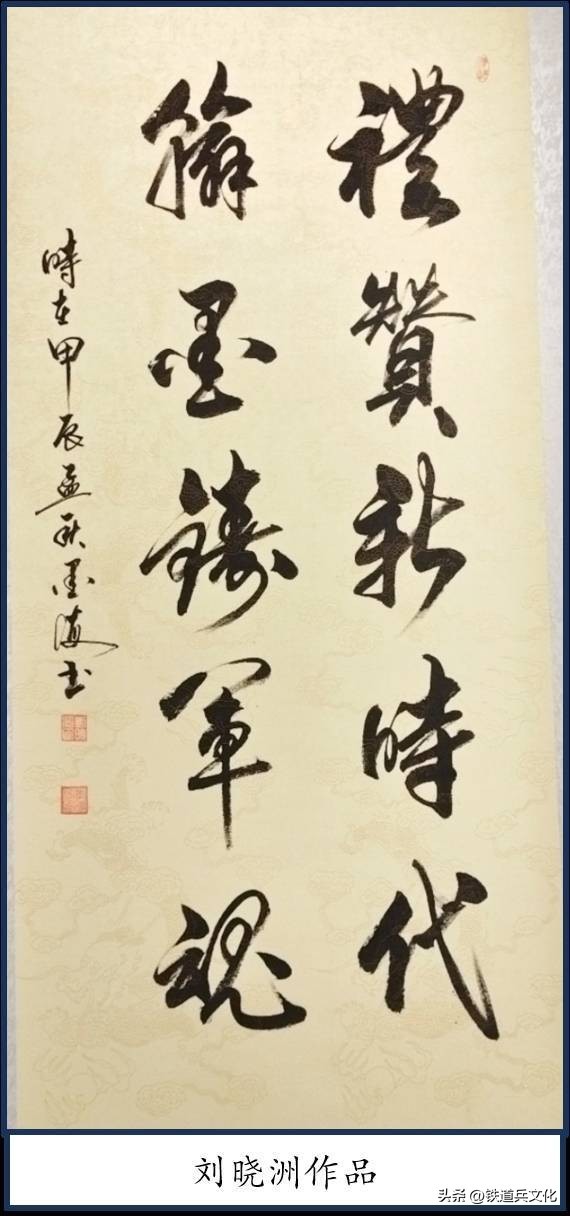 禮贊新時代
翰墨鑄軍魂
時在甲辰孟秋墨海書
刘晓洲作品
头条 @铁道兵文化